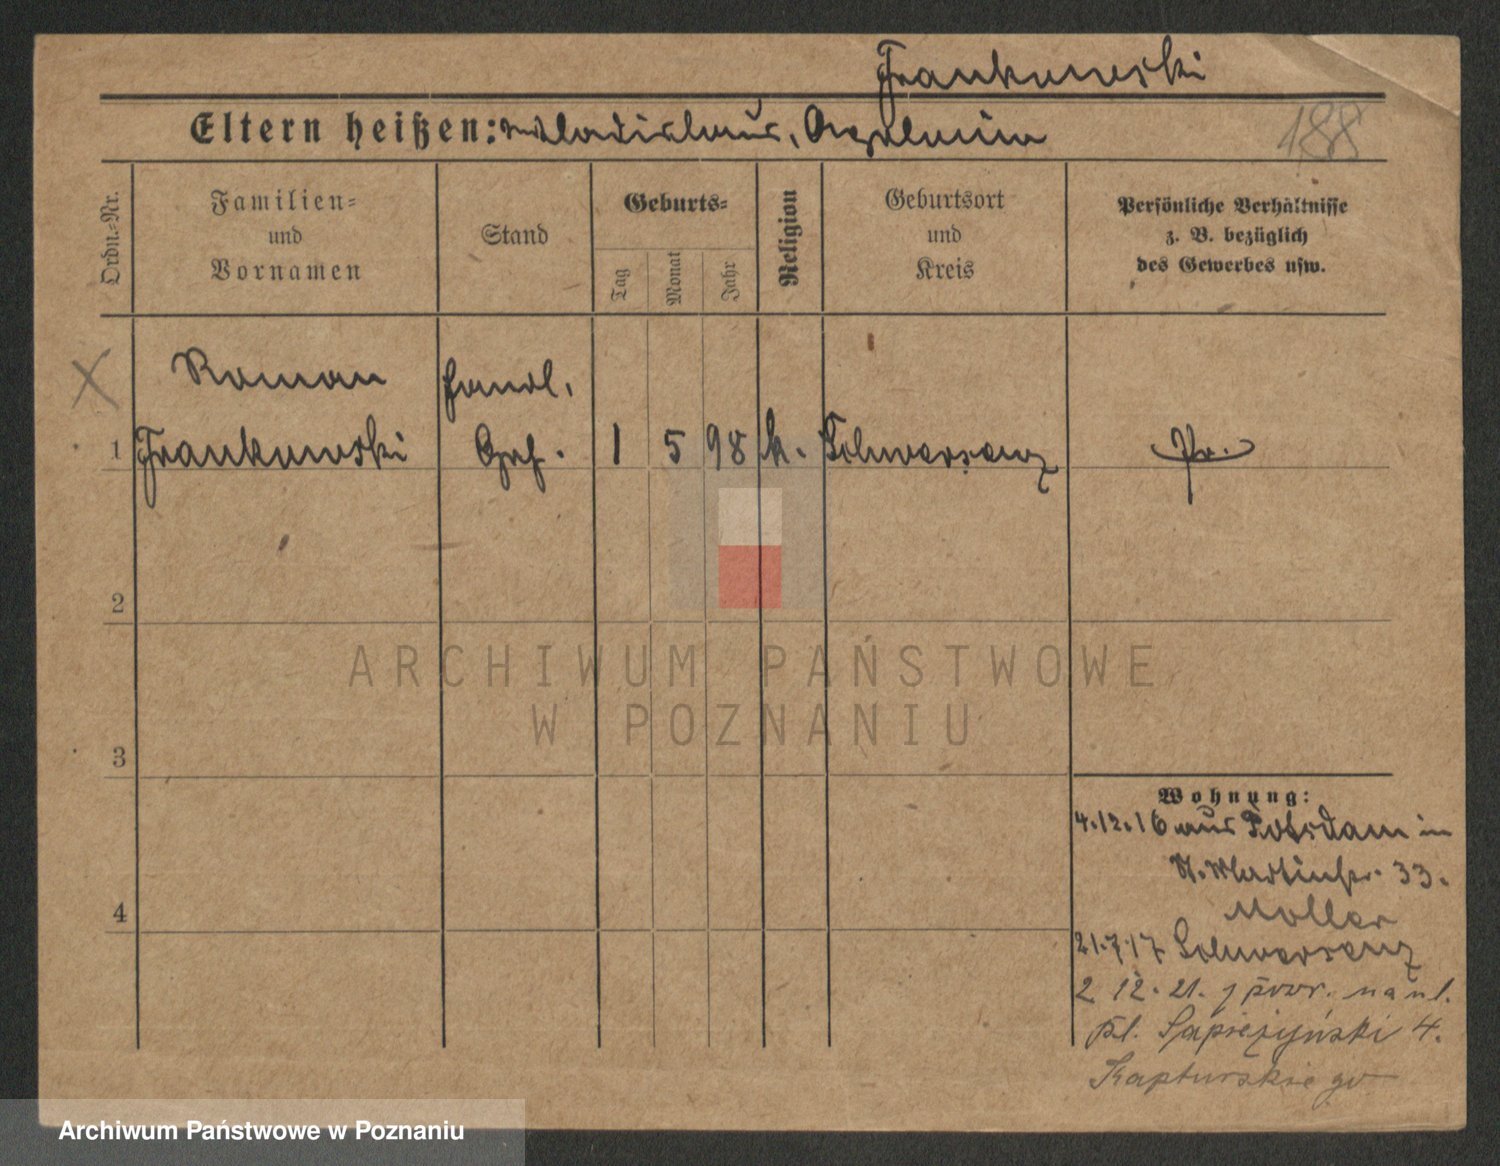 Frankowski
Eltern heißen: Wladislaus,
188
Ordn.-Nr.
Familien-
und
Vornamen
Stand
Geburts-
Tag
Monat
Jahr
Religion
Geburtsort
und
Kreis
Persönliche Verhältnisse
z. B. bezüglich
des Gewerbes usw.
X
Roman Handl.
1 Frankowski Gehf. 1 5 98 k. Schwersenz Pr.
2
3
4
ARCHIWUM PAŃSTWOWE
W POZNANIU
Wohnung:
4.12.16 aus Potsdam in
St. Martinstr. 33.
Moller
21.7.17 Schwersenz
2 12. 21. z powr. na ul.
pl. Sapieżyński 4.
Kapturskiego
Archiwum Państwowe w Poznaniu